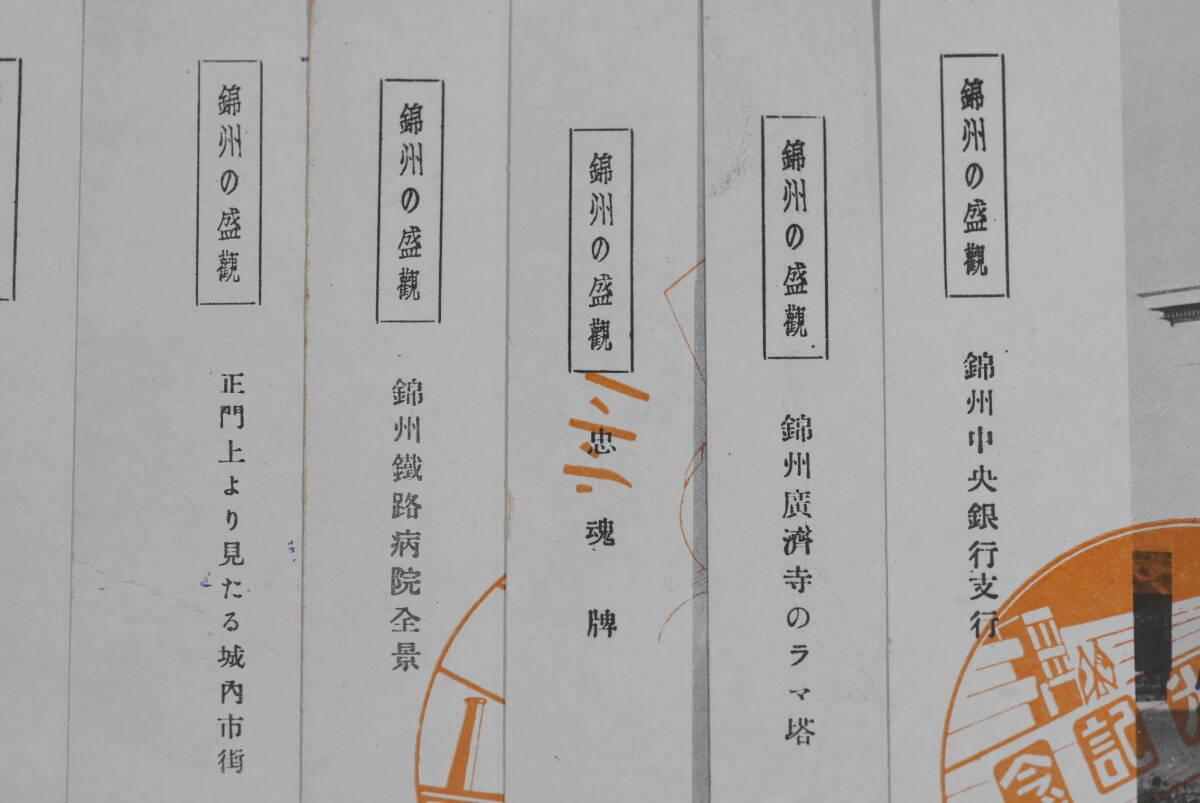 錦州の盛觀
錦州中央銀行支行
錦州の盛觀
錦州廣濟寺のラマ塔
錦州の盛觀
忠魂牌
錦州の盛觀
錦州鐵路病院全景
錦州の盛觀
正門上より見たる城內市街
記念